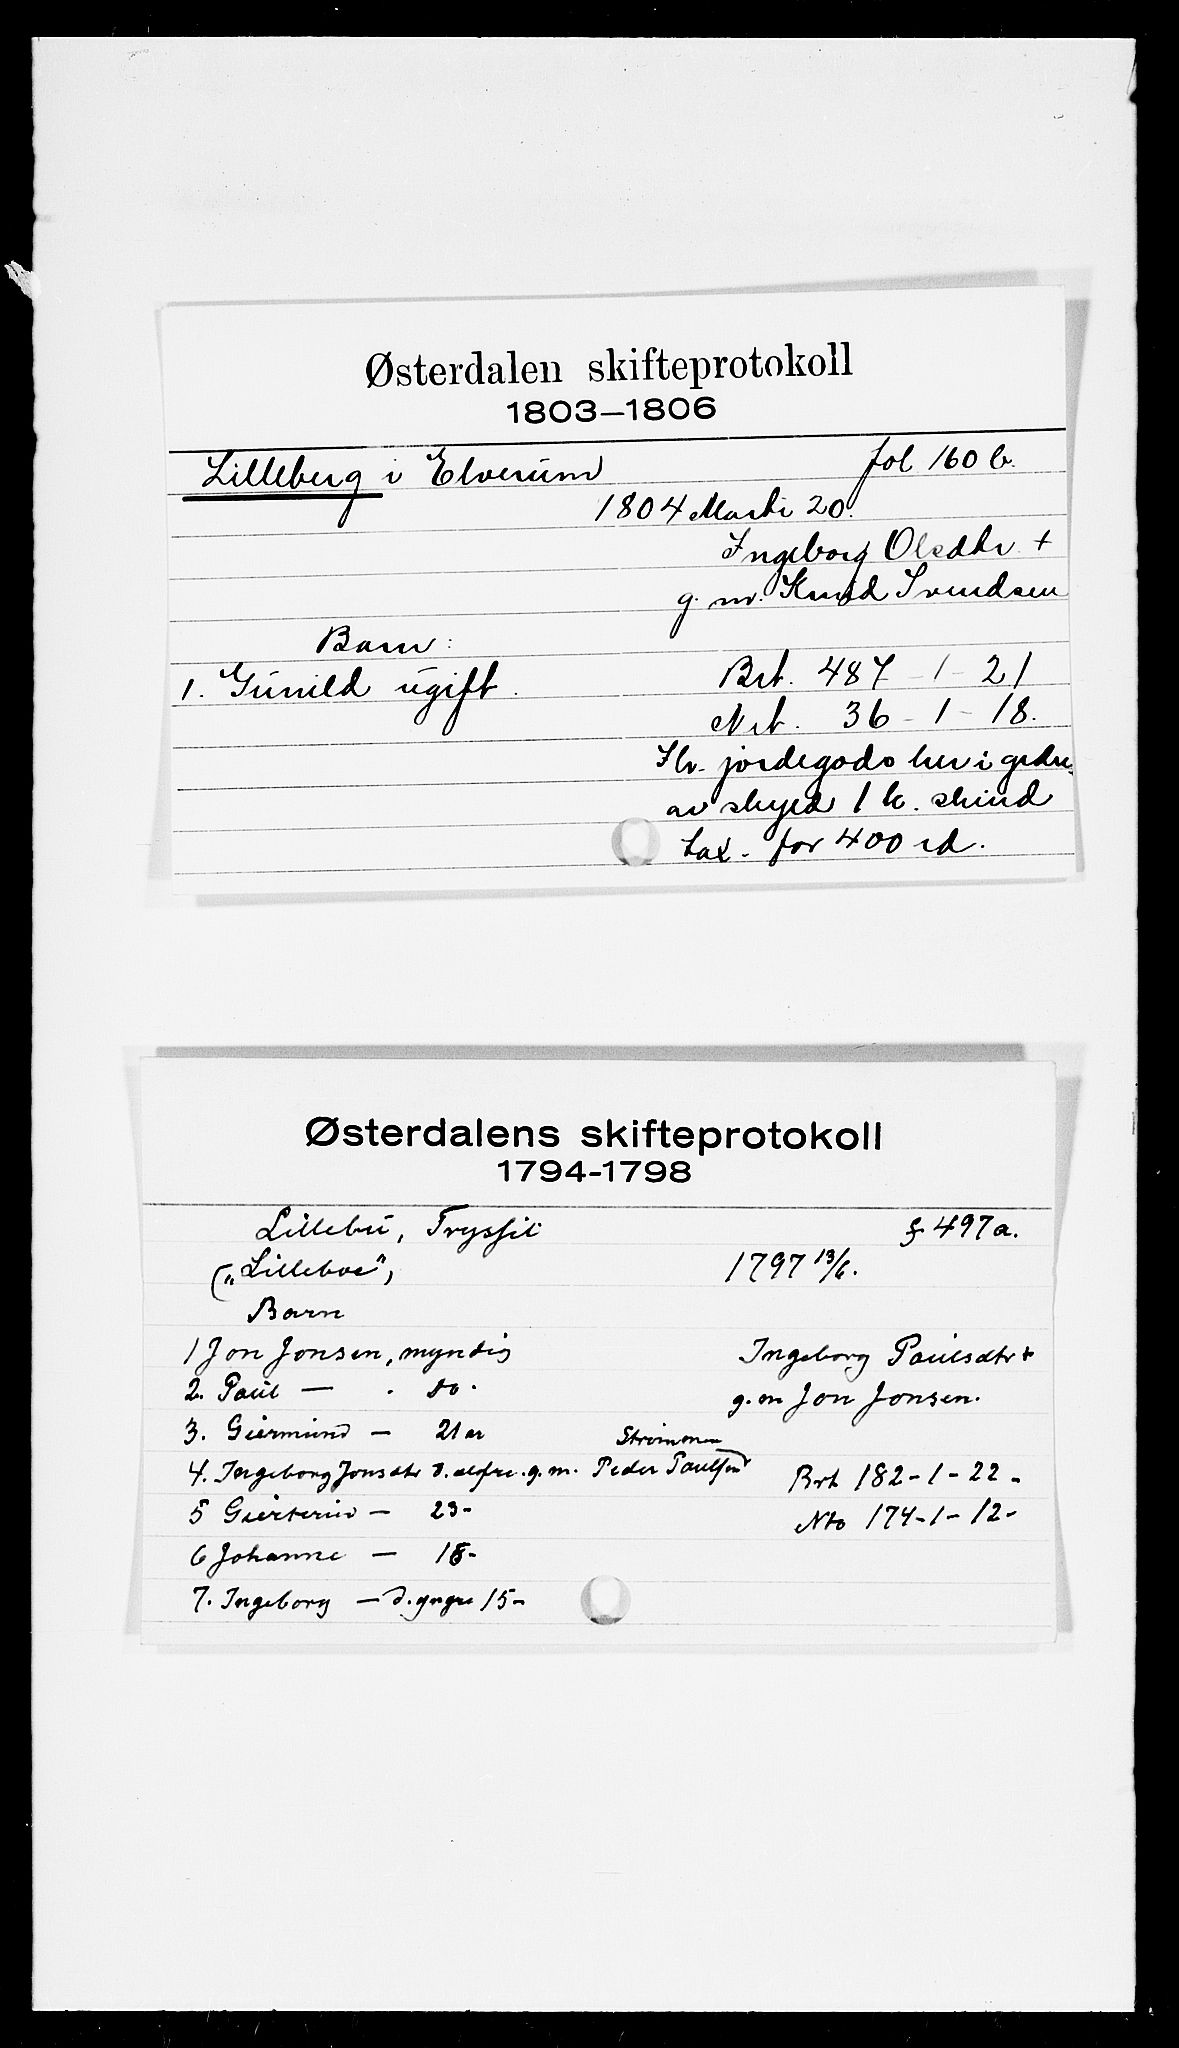 Østerdalen skifteprotokoll
1803–1806
Lilleberg i Elverum fol 160 b.
1804 Marti 20.
Ingeborg Olsdtr +
g. m. Knud Svendsen
Barn:
1. Gunild ugift. Brt. 487 - 1 - 21
Nrt. 36 - 1 - 18.
jordegods her i grdn.
av skyld 1 k. skind
tax. for 400 rd.
Østerdalens skifteprotokoll
1794-1798
Lillebu, Tryssil f 497a.
("Lilleboe", 1797 13/6.
Barn
1 Jon Jonsen, myndig Ingeborg Paulsdtr +
2. Paul — . do. g. m Jon Jonsen.
3. Giermund — 21 år
Strømmen
4. Ingeborg Jonsdtr d. eldre. g. m. Peder Paulsen Brt 182-1-22-
5 — 23- Nto 174-1-12-
6 Johanne — 18-
7. Ingeborg — d. yngre 15-